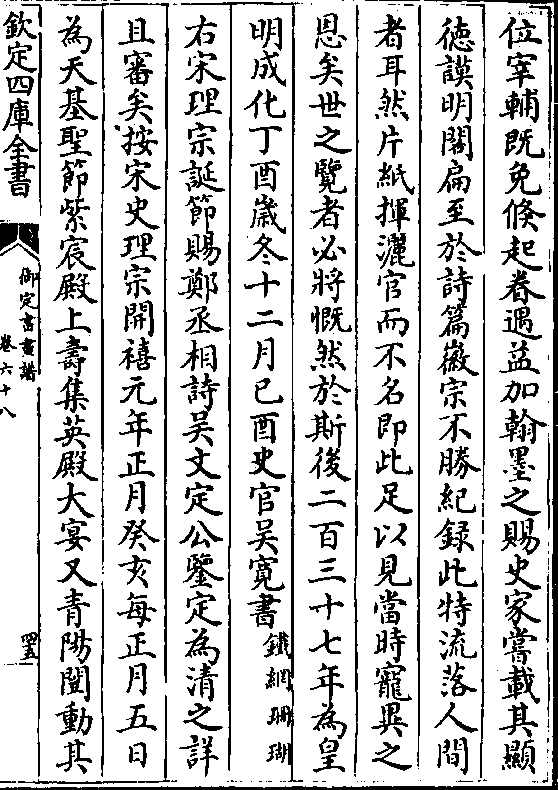 位宰輔既免倐起眷遇益加翰墨之賜史家嘗載其顯
徳謨明閣扁至於詩篇徽宗不勝紀録此特流落人間
者耳然片紙揮灑官而不名即此足以見當時寵異之
恩矣世之覽者必將慨然於斯後二百三十七年為皇
明成化丁酉嵗冬十二月己酉史官吴寛書鐵網珊瑚
右宋理宗誕節賜鄭丞相詩吴文定公鑒定為清之詳
且審矣按宋史理宗開禧元年正月癸亥每正月五日
為天基聖節紫宸殿上壽集英殿大宴又青陽闓動其
欽定四庫全書
御定書畫譜
卷六十八
罢